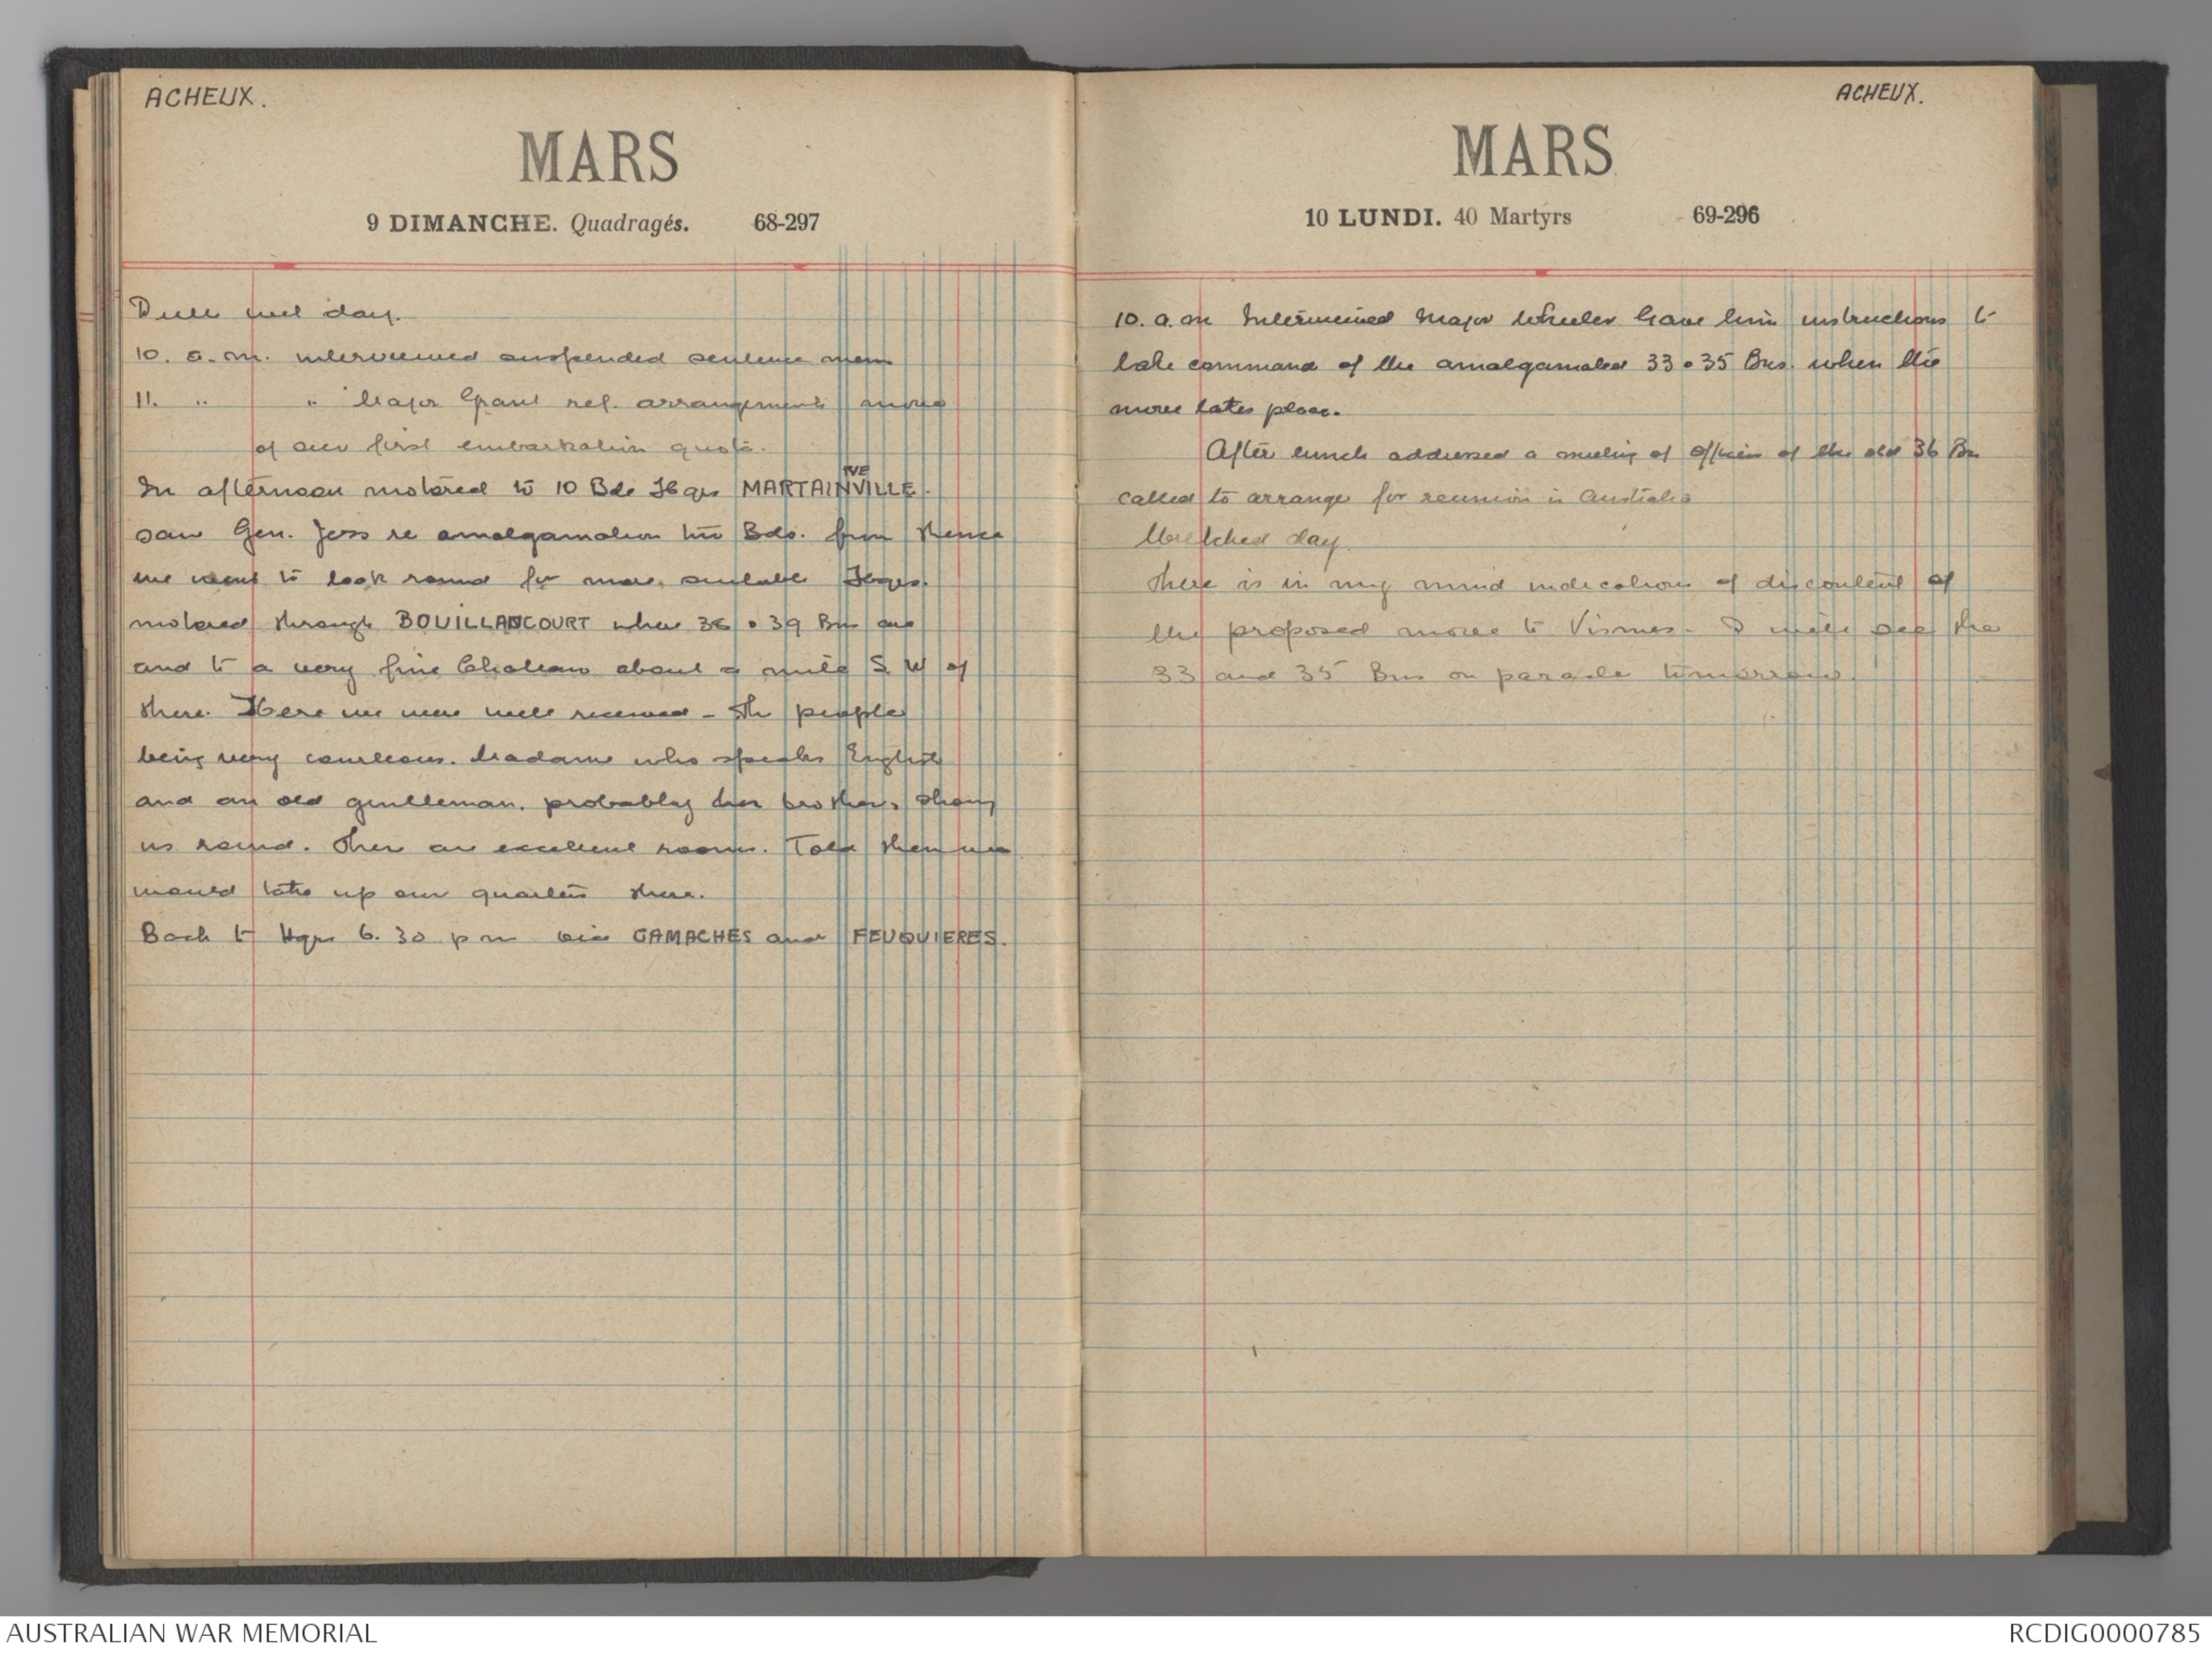 ACHEUX.
MARS
9 DIMANCHE. Quadragés. 68-297
Dull wet day.
10. a.m. interviewed suspended sentence men
11. " " Major Grant ref. arrangements move
of our first embarkation quota.
In afternoon motored to 10 Bde Hqrs MARTAINVILLE.
saw Gen. Jess re amalgamation two Bdes. from thence
we went to look round for more suitable Hqrs.
motored through BOUILLANCOURT where 38 & 39 Bns are
and to a very fine Chateau about a mile S. W of
there. Here we were well received - the people
being very courteous. Madame who speaks English
and an old gentleman. probably her brother, shows
us round. There are excellent rooms. Told them we
would take up our quarters there.
Back to Hqrs 6. 30 p m via GAMACHES and FEUQUIERES.
ACHEUX.
MARS
10 LUNDI. 40 Martyrs 69-296
10. a.m Interviewed Major Wheeler Gave him instructions to
take command of the amalgamated 33 & 35 Bns. when the
move takes place.
After lunch addressed a meeting of officers of the old 36 Bn
called to arrange for reunion in Australia
Wretched day.
There is in my mind indications of discontent of
the proposed move to Vismes. I will see the
33 and 35 Bns on parade tomorrow.
AUSTRALIAN WAR MEMORIAL
RCDIG0000785